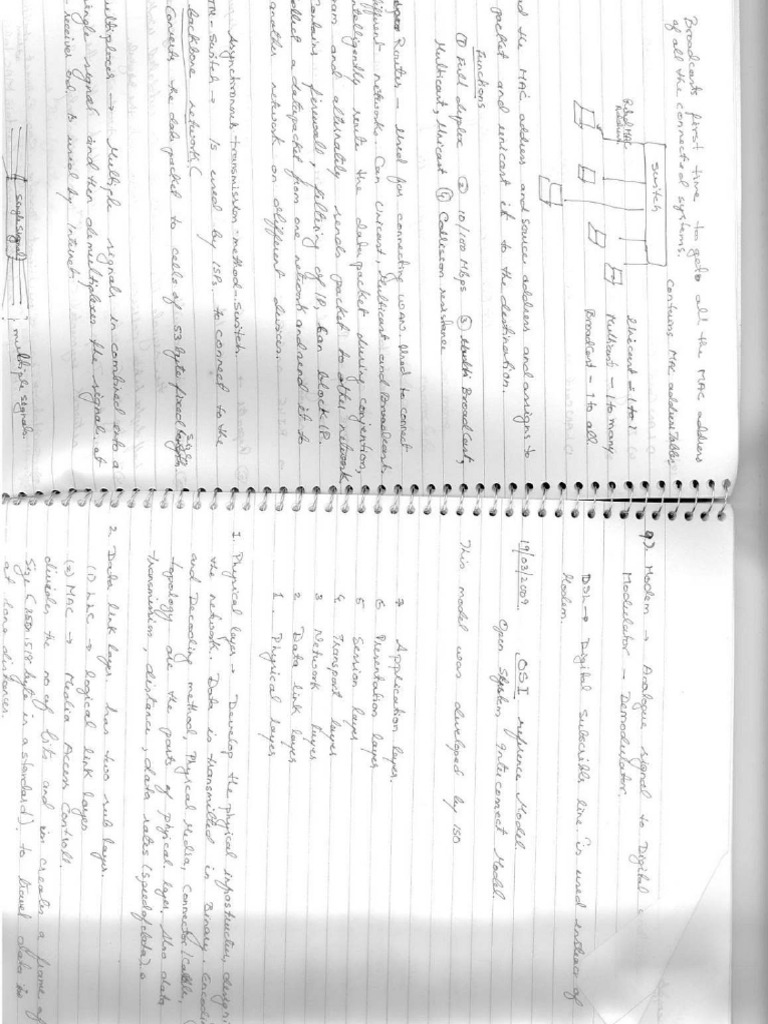 Broadcasts first time to get all the MAC address
of all the connected systems.
contains MAC address Tables
Switch
Unicast - 1 to 1
Multicast - 1 to many
Broadcast - 1 to all
d the MAC address and source address and assigns to
packet and unicast it to the destination.
Functions
(1) Full duplex (2) 10/100 Mbps (3) BroadCast,
Multicast, Unicast (4) Collision resistance
Router - Used for connecting WAN. Used to connect
different networks. Can Unicast, Multicast and Broadcast.
Intelligently route the data packet during conjention,
from and alternately sends packet to other network
Contains firewall, filtering of IP, can block IP.
collect a datapacket from one network and send it to
another network on different devices.
Asynchronous transmission method - Switch.
TM - Switch → Is used by ISP, to connect to the
backbone network.
Converts the data packet to cells of 53 byte fixed size
ultiplexer → Multiple signals in combined onto a
single signal and then demultiplexes the signal at
receiver end, is used by Internet
single signal
multiple signals.
9). Modem → Analogue signal to Digital
Modulator - Demodulator.
DSL → Digital Subscrible line is used instead of
Modem.
19/03/2009 OSI reference Model
Open System Interconnect Model.
This model was developed by ISO
7 Application layer.
6 Presentation layer
5 Session layer
4. Transport layer
3 Network layer
2 Data link layer
1. Physical layer
1. Physical layer → Develop the physical infrastructure, design
the network. Data is transmitted in Binary. Encoding
and Decoding method, Physical Media, Connector (cable,
topology are the parts of physical layer. Also data
transmission, distance, data rates (speed of data).
2. Data link layer has two sub layer.
(1) LLC → logical link layer
(2) MAC → Media Access Controll.
divides the no of bits and creates a frame of
Size (1518 byte is a standard). to travel data
at long distances.